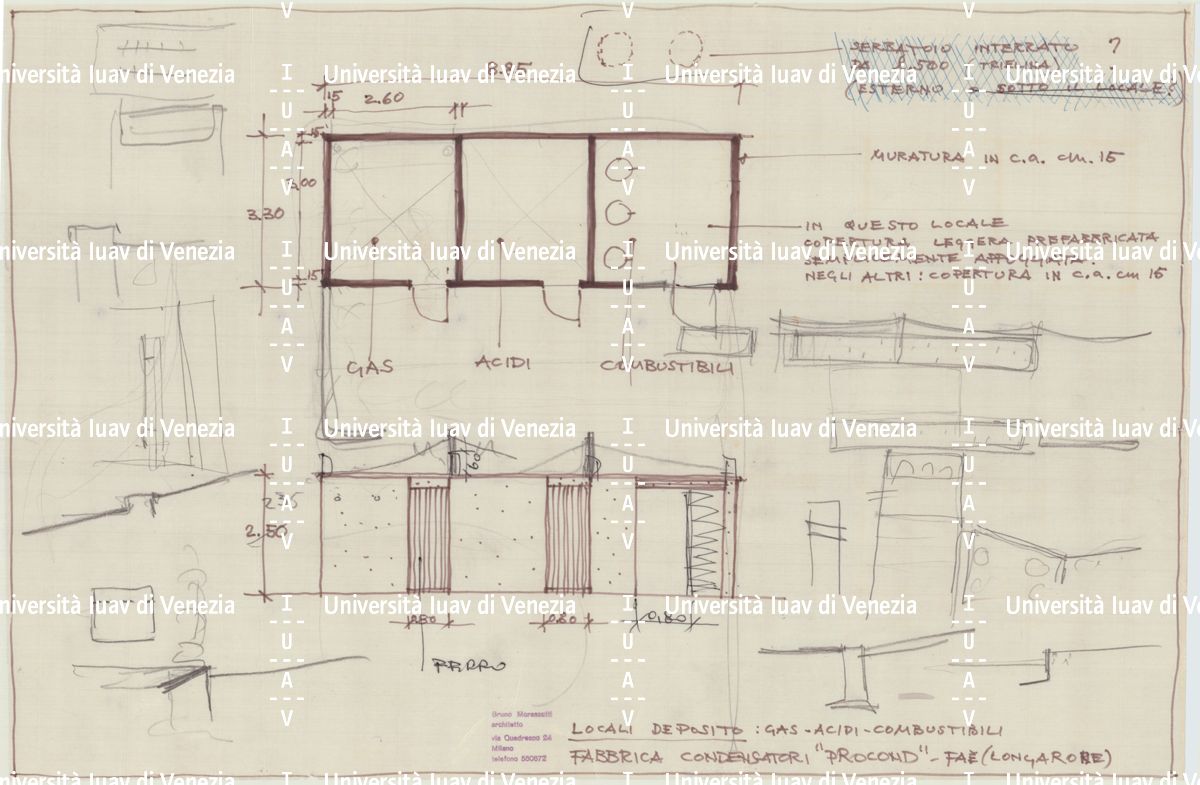 SERBATOIO INTERRATO ?
DA L. 500
(ESTERNO o SOTTO IL LOCALE)
8.85
15
2.60
15
3.30
15
MURATURA IN C.A. CM. 15
IN QUESTO LOCALE
COPERTURA LEGGERA PREFABBRICATA
SEMPLICEMENTE APPOGGIATA.
NEGLI ALTRI: COPERTURA IN C.A. CM 15
GAS
ACIDI
COMBUSTIBILI
60
2.50
0.80
0.80
0.80
FERRO
Bruno Morassutti
architetto
via Quadronno 24
Milano
telefono 550672
LOCALI DEPOSITO: GAS-ACIDI-COMBUSTIBILI
FABBRICA CONDENSATORI "PROCOND" - FAÈ (LONGARONE)
Università Iuav di Venezia
I
U
A
V